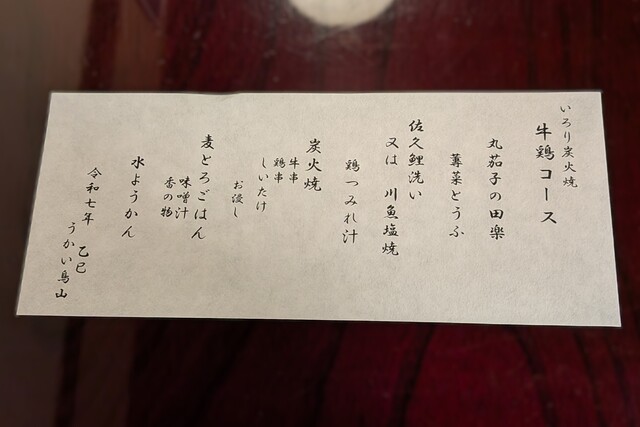 いろり炭火焼
牛鶏コース
丸茄子の田楽
蓴菜とうふ
佐久鯉洗い
又は 川魚塩焼
鶏つみれ汁
炭火焼
牛串
鶏串
しいたけ
お浸し
麦とろごはん
味噌汁
香の物
水ようかん
令和七年 乙巳
うかい鳥山